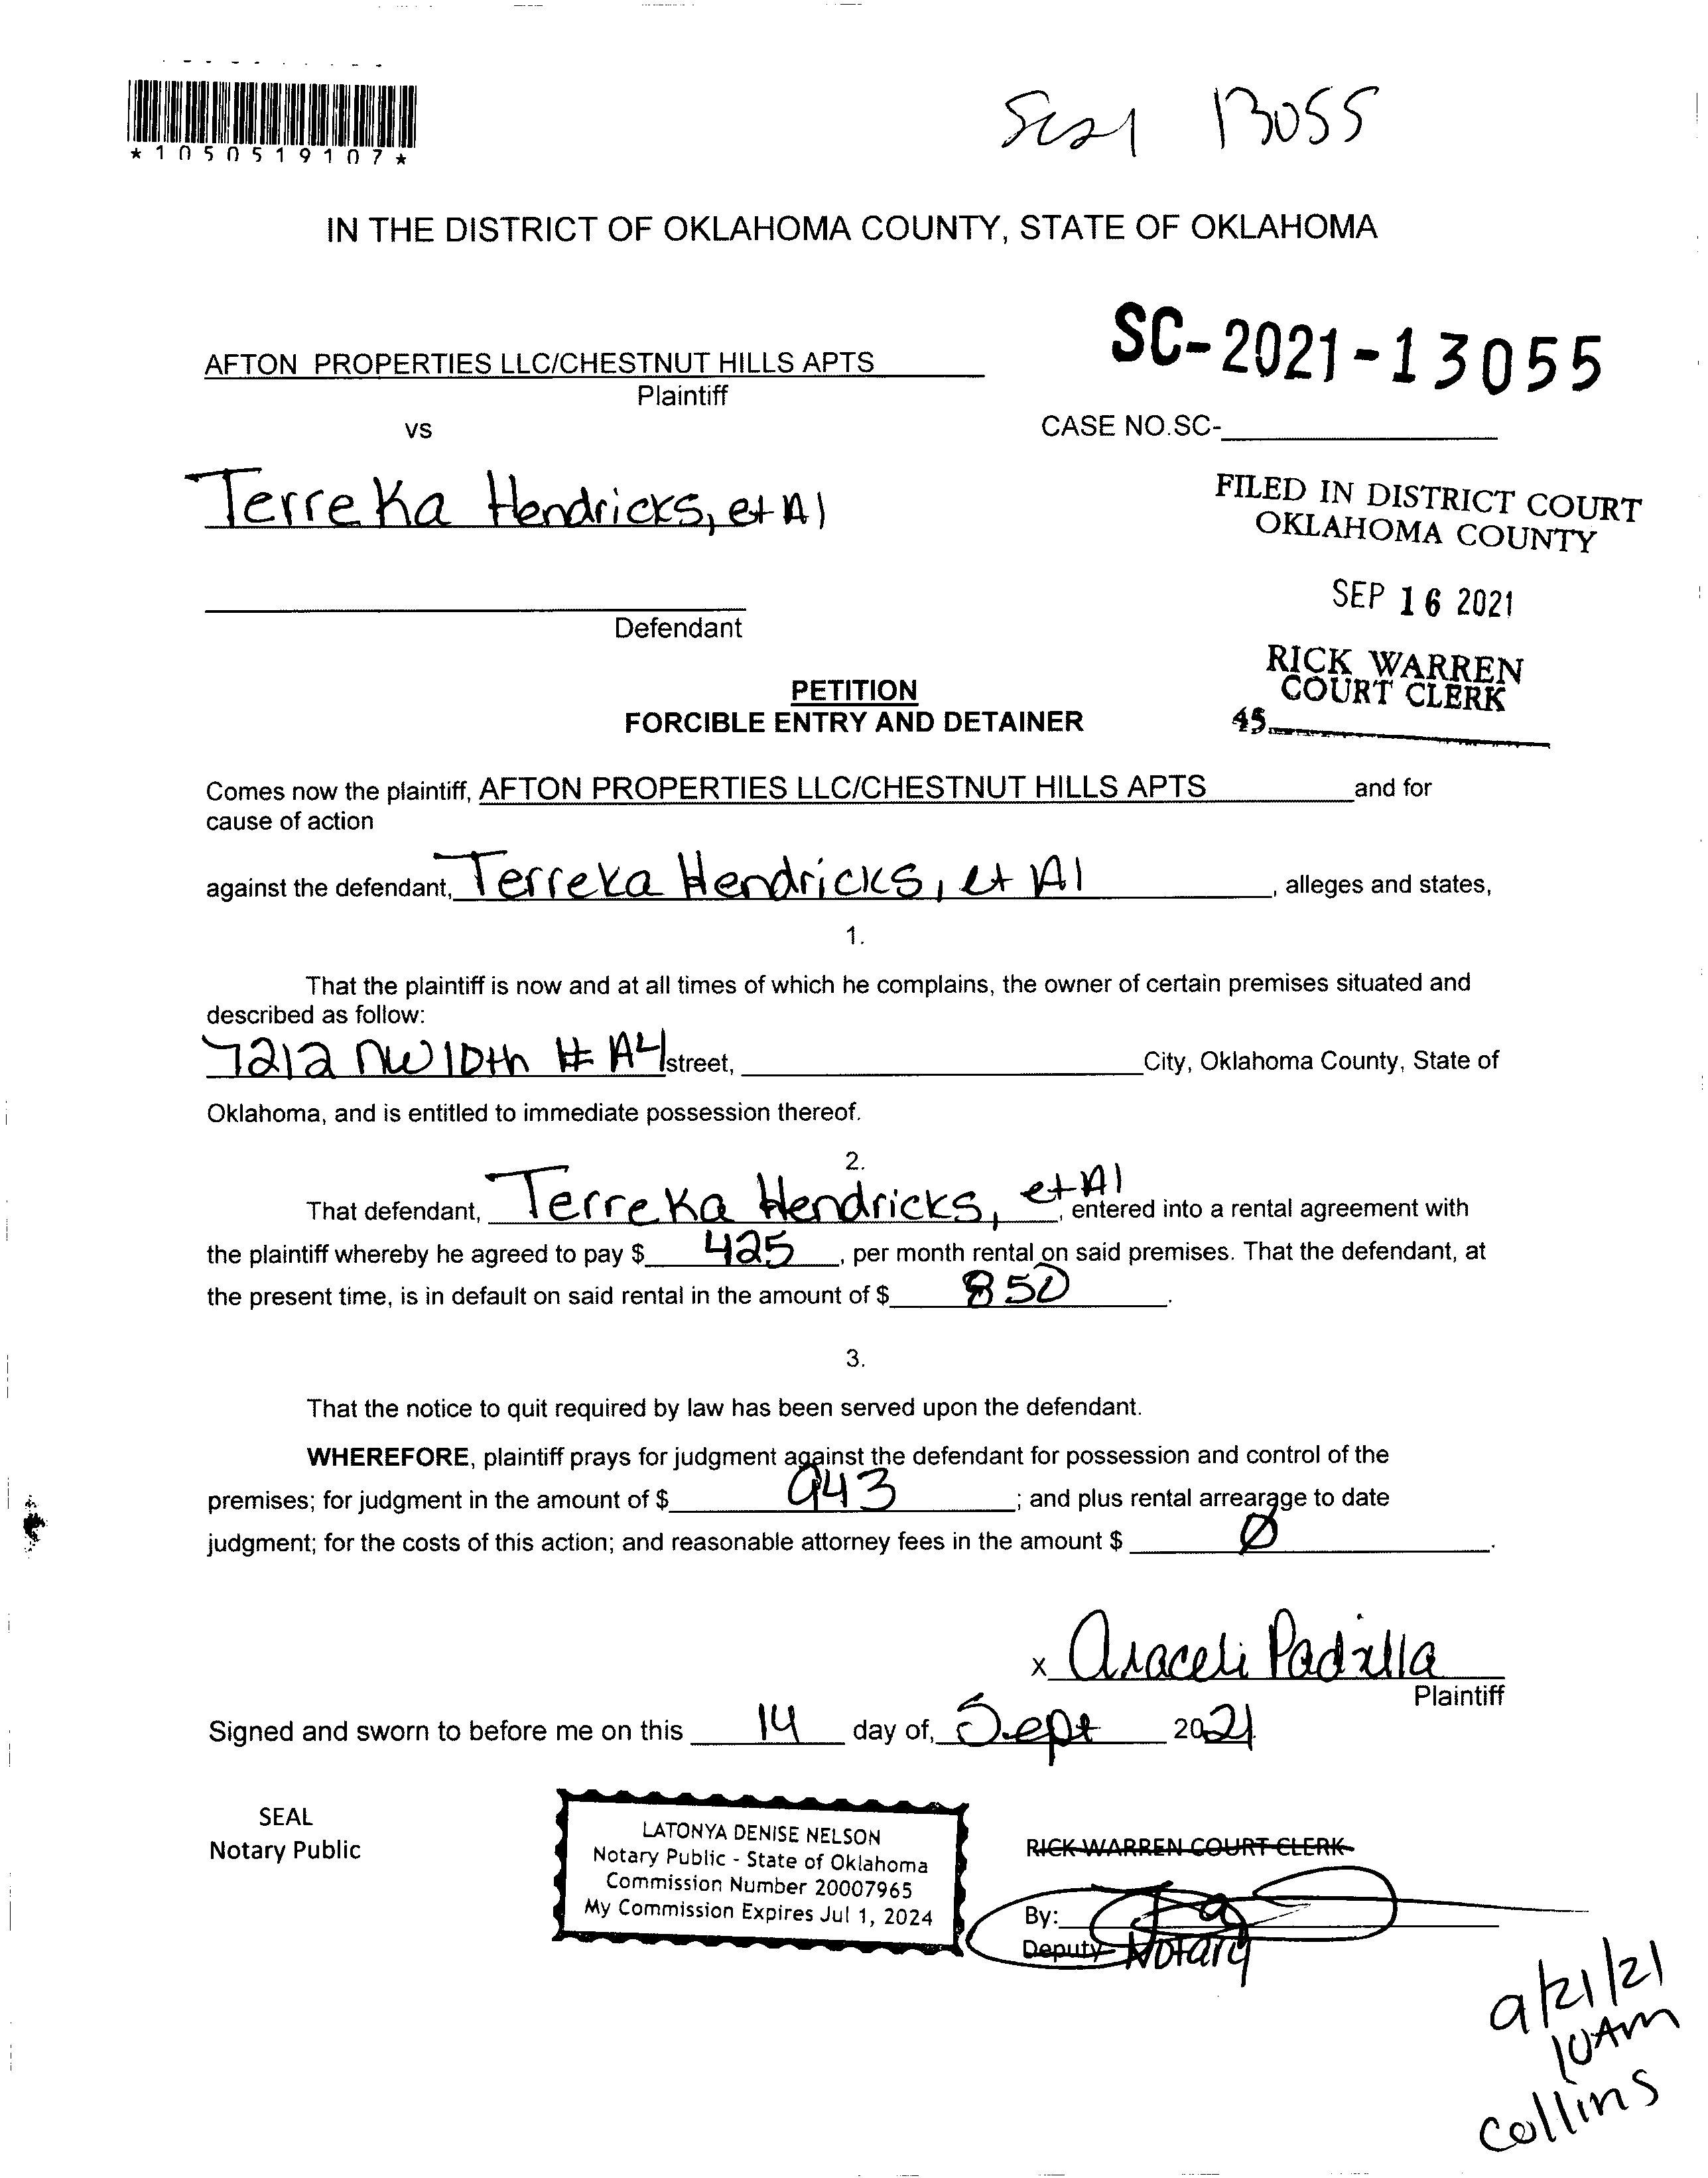 *1050519107*
SC21 13055
IN THE DISTRICT OF OKLAHOMA COUNTY, STATE OF OKLAHOMA
SC-2021-13055
AFTON PROPERTIES LLC/CHESTNUT HILLS APTS
Plaintiff
vs
CASE NO.SC-
Terreka Hendricks, et Al
FILED IN DISTRICT COURT
OKLAHOMA COUNTY
SEP 16 2021
Defendant
RICK WARREN
COURT CLERK
45
PETITION
FORCIBLE ENTRY AND DETAINER
Comes now the plaintiff, AFTON PROPERTIES LLC/CHESTNUT HILLS APTS and for
cause of action
against the defendant, Terreka Hendricks, et Al, alleges and states,
1.
That the plaintiff is now and at all times of which he complains, the owner of certain premises situated and
described as follow:
7212 NW 10th # A4 street, City, Oklahoma County, State of
Oklahoma, and is entitled to immediate possession thereof.
2.
That defendant, Terreka Hendricks, et Al, entered into a rental agreement with
the plaintiff whereby he agreed to pay $ 425, per month rental on said premises. That the defendant, at
the present time, is in default on said rental in the amount of $ 850.
3.
That the notice to quit required by law has been served upon the defendant.
WHEREFORE, plaintiff prays for judgment against the defendant for possession and control of the
premises; for judgment in the amount of $ 943; and plus rental arrearage to date
judgment; for the costs of this action; and reasonable attorney fees in the amount $ Ø.
x Araceli Padilla
Plaintiff
Signed and sworn to before me on this 14 day of, Sept 2021
SEAL
Notary Public
LATONYA DENISE NELSON
Notary Public - State of Oklahoma
Commission Number 20007965
My Commission Expires Jul 1, 2024
RICK WARREN COURT CLERK
By:
Deputy Notary
9/21/21
10AM
Collins